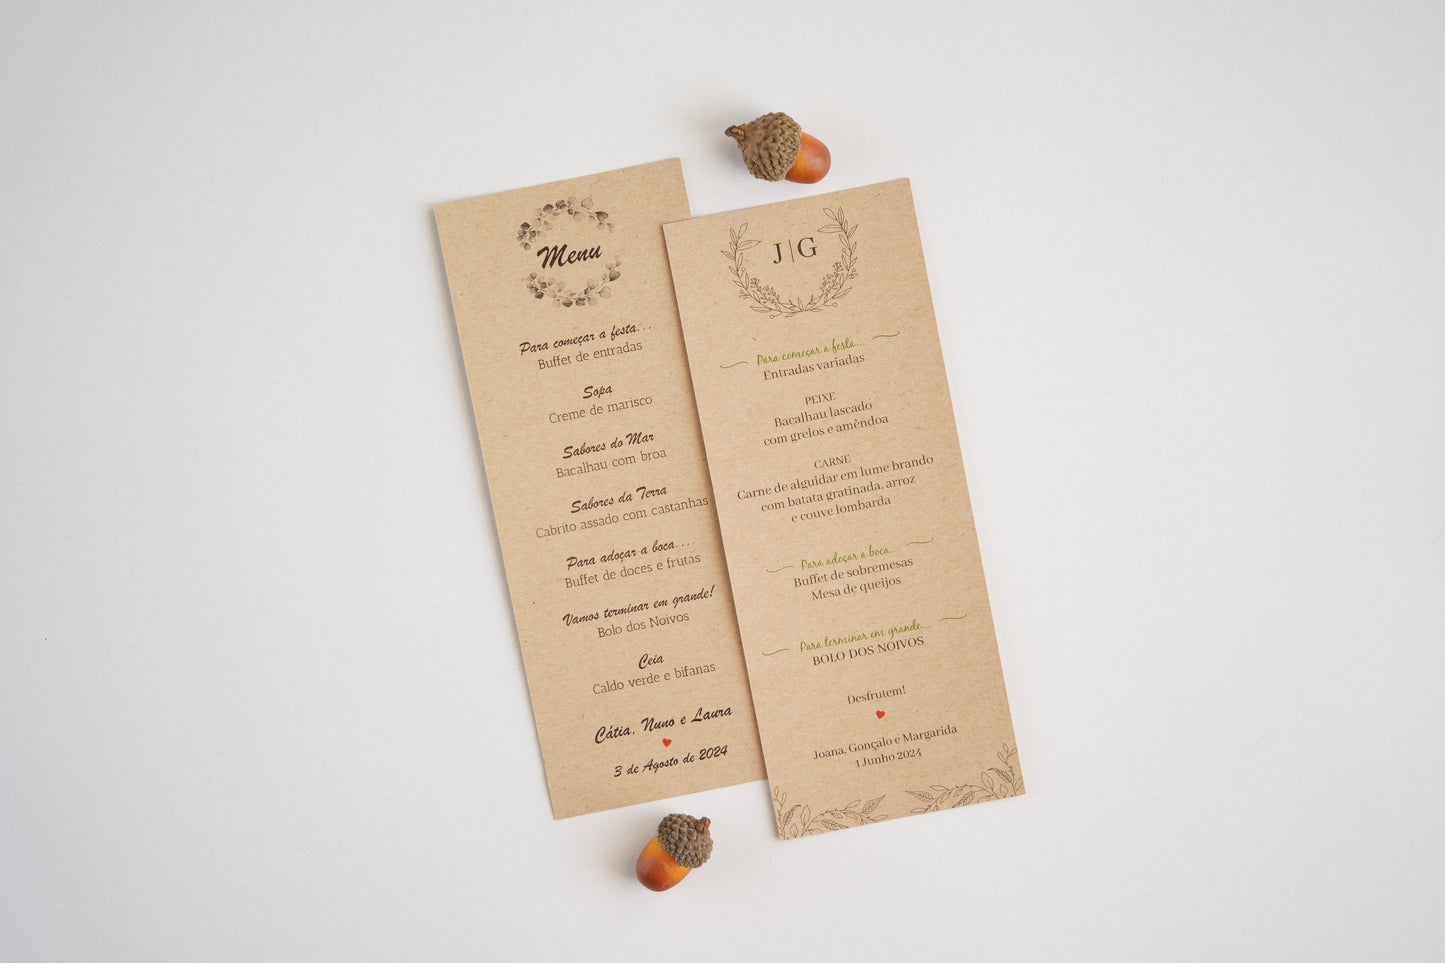 Menu
Para começar a festa...
Buffet de entradas
Sopa
Creme de marisco
Sabores do Mar
Bacalhau com broa
Sabores da Terra
Cabrito assado com castanhas
Para adoçar a boca...
Buffet de doces e frutas
Vamos terminar em grande!
Bolo dos Noivos
Ceia
Caldo verde e bifanas
Cátia, Nuno e Laura
3 de Agosto de 2024
J|G
Para começar a festa...
Entradas variadas
PEIXE
Bacalhau lascado
com grelos e amêndoa
CARNE
Carne de alguidar em lume brando
com batata gratinada, arroz
e couve lombarda
Para adoçar a boca...
Buffet de sobremesas
Mesa de queijos
Para terminar em grande...
BOLO DOS NOIVOS
Desfrutem!
Joana, Gonçalo e Margarida
1 Junho 2024